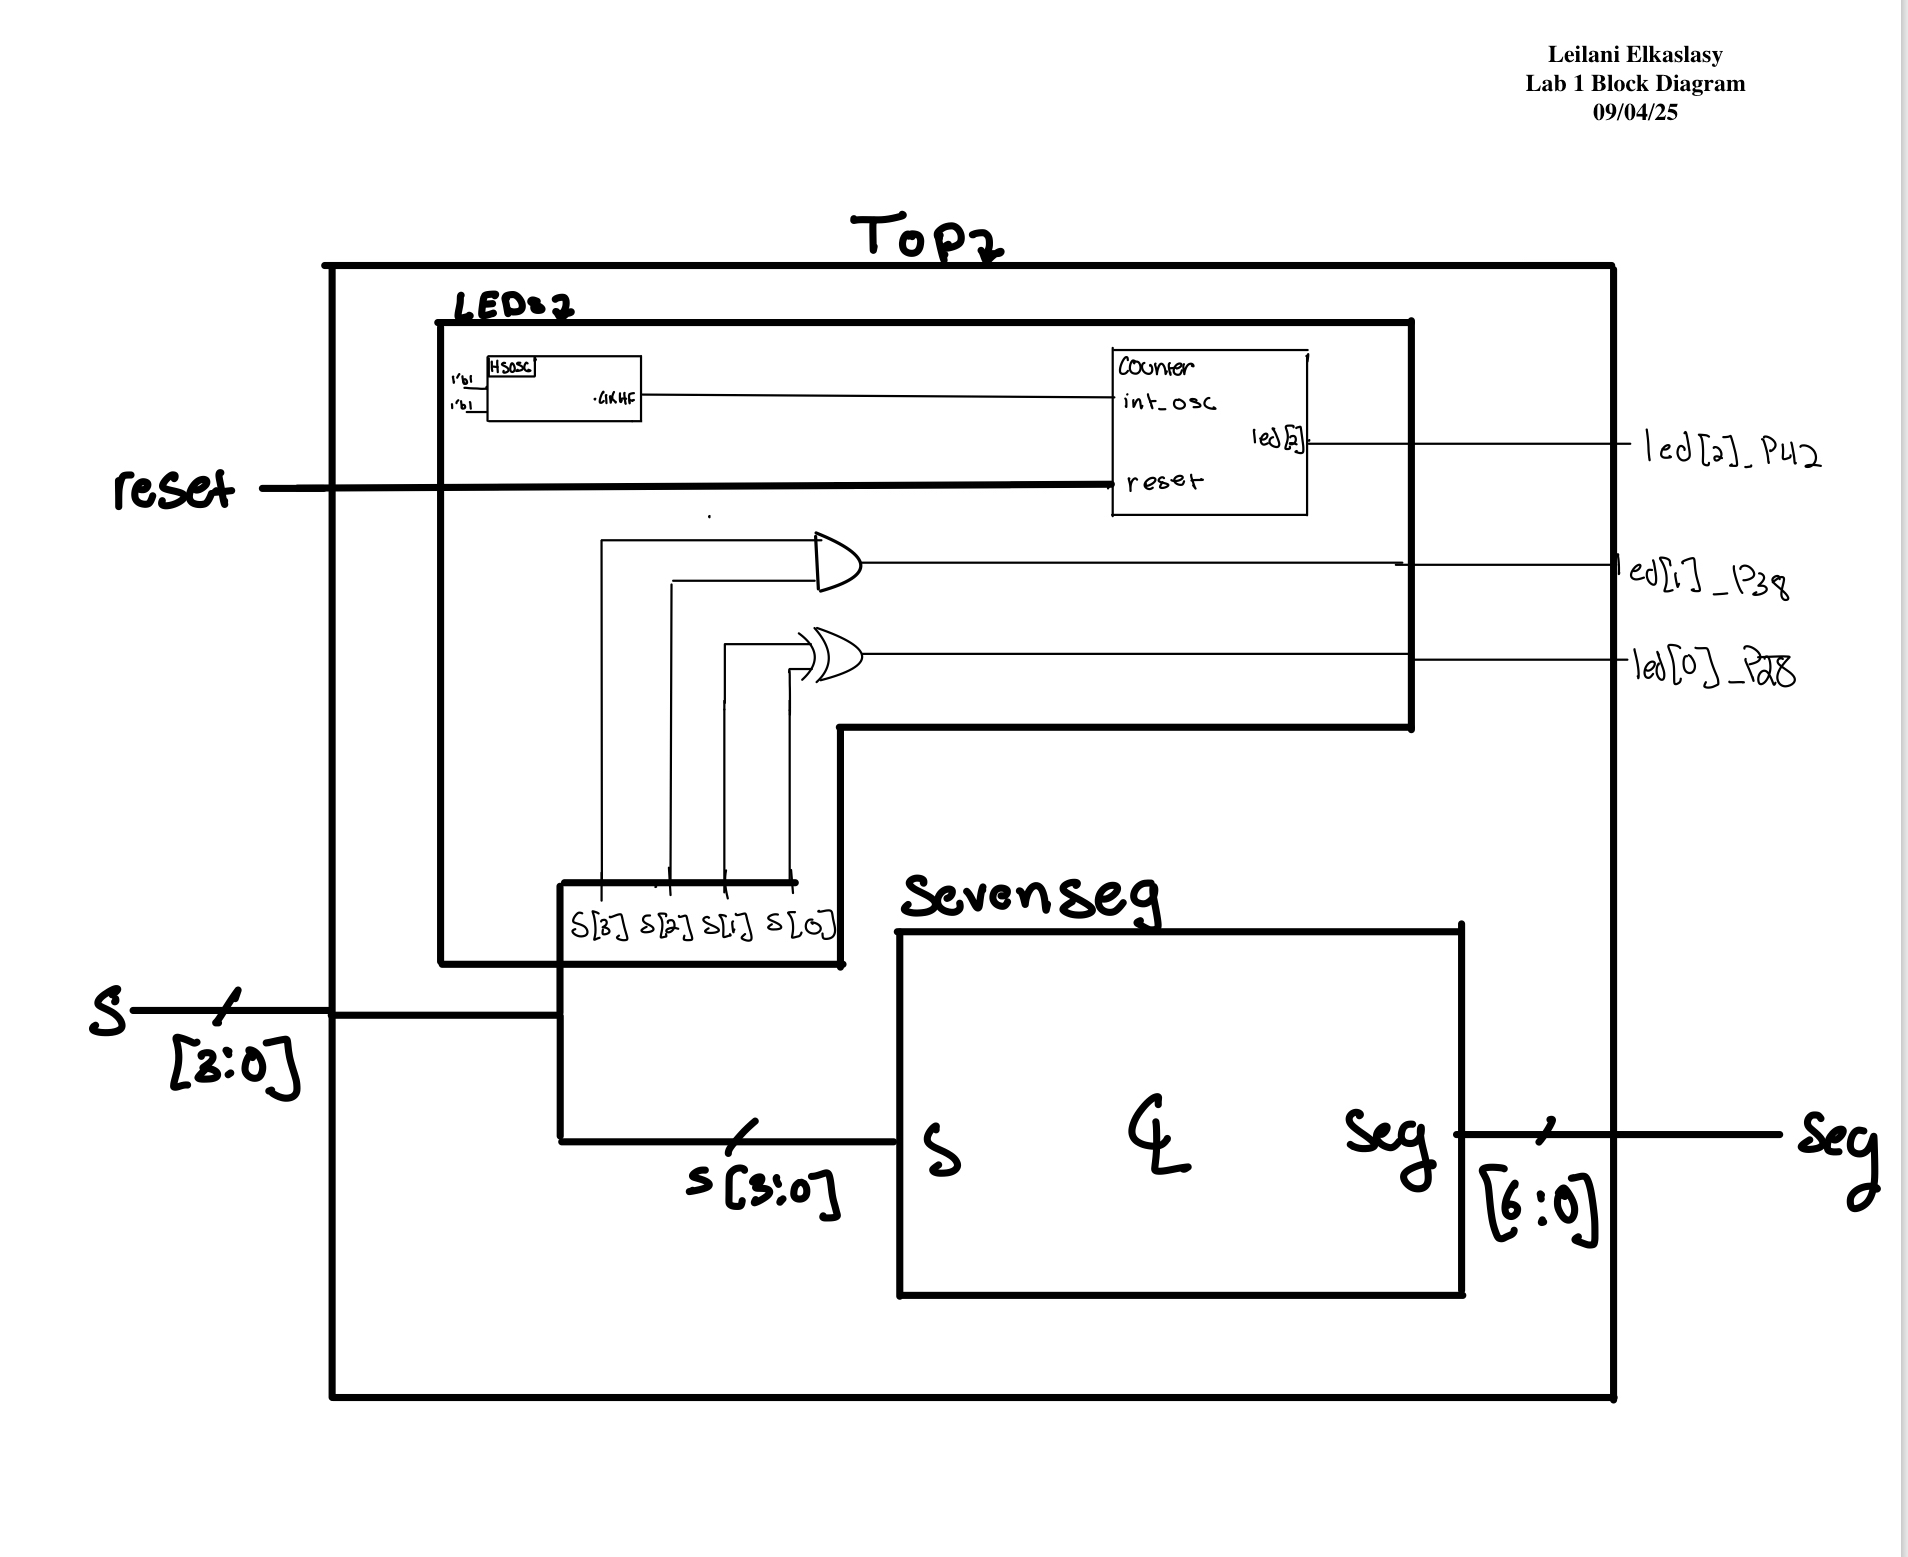 Leilani Elkaslasy
Lab 1 Block Diagram
09/04/25
Top2
LEDs2
HSOSC
1'b1
1'b1
.CLKHF
Counter
int_osc
led[2]
reset
led[2]_P42
reset
led[1]_P38
led[0]_P28
S[3] S[2] S[1] S[0]
Sevenseg
S
[3:0]
S[3:0]
S
CL
Seg
[6:0]
Seg